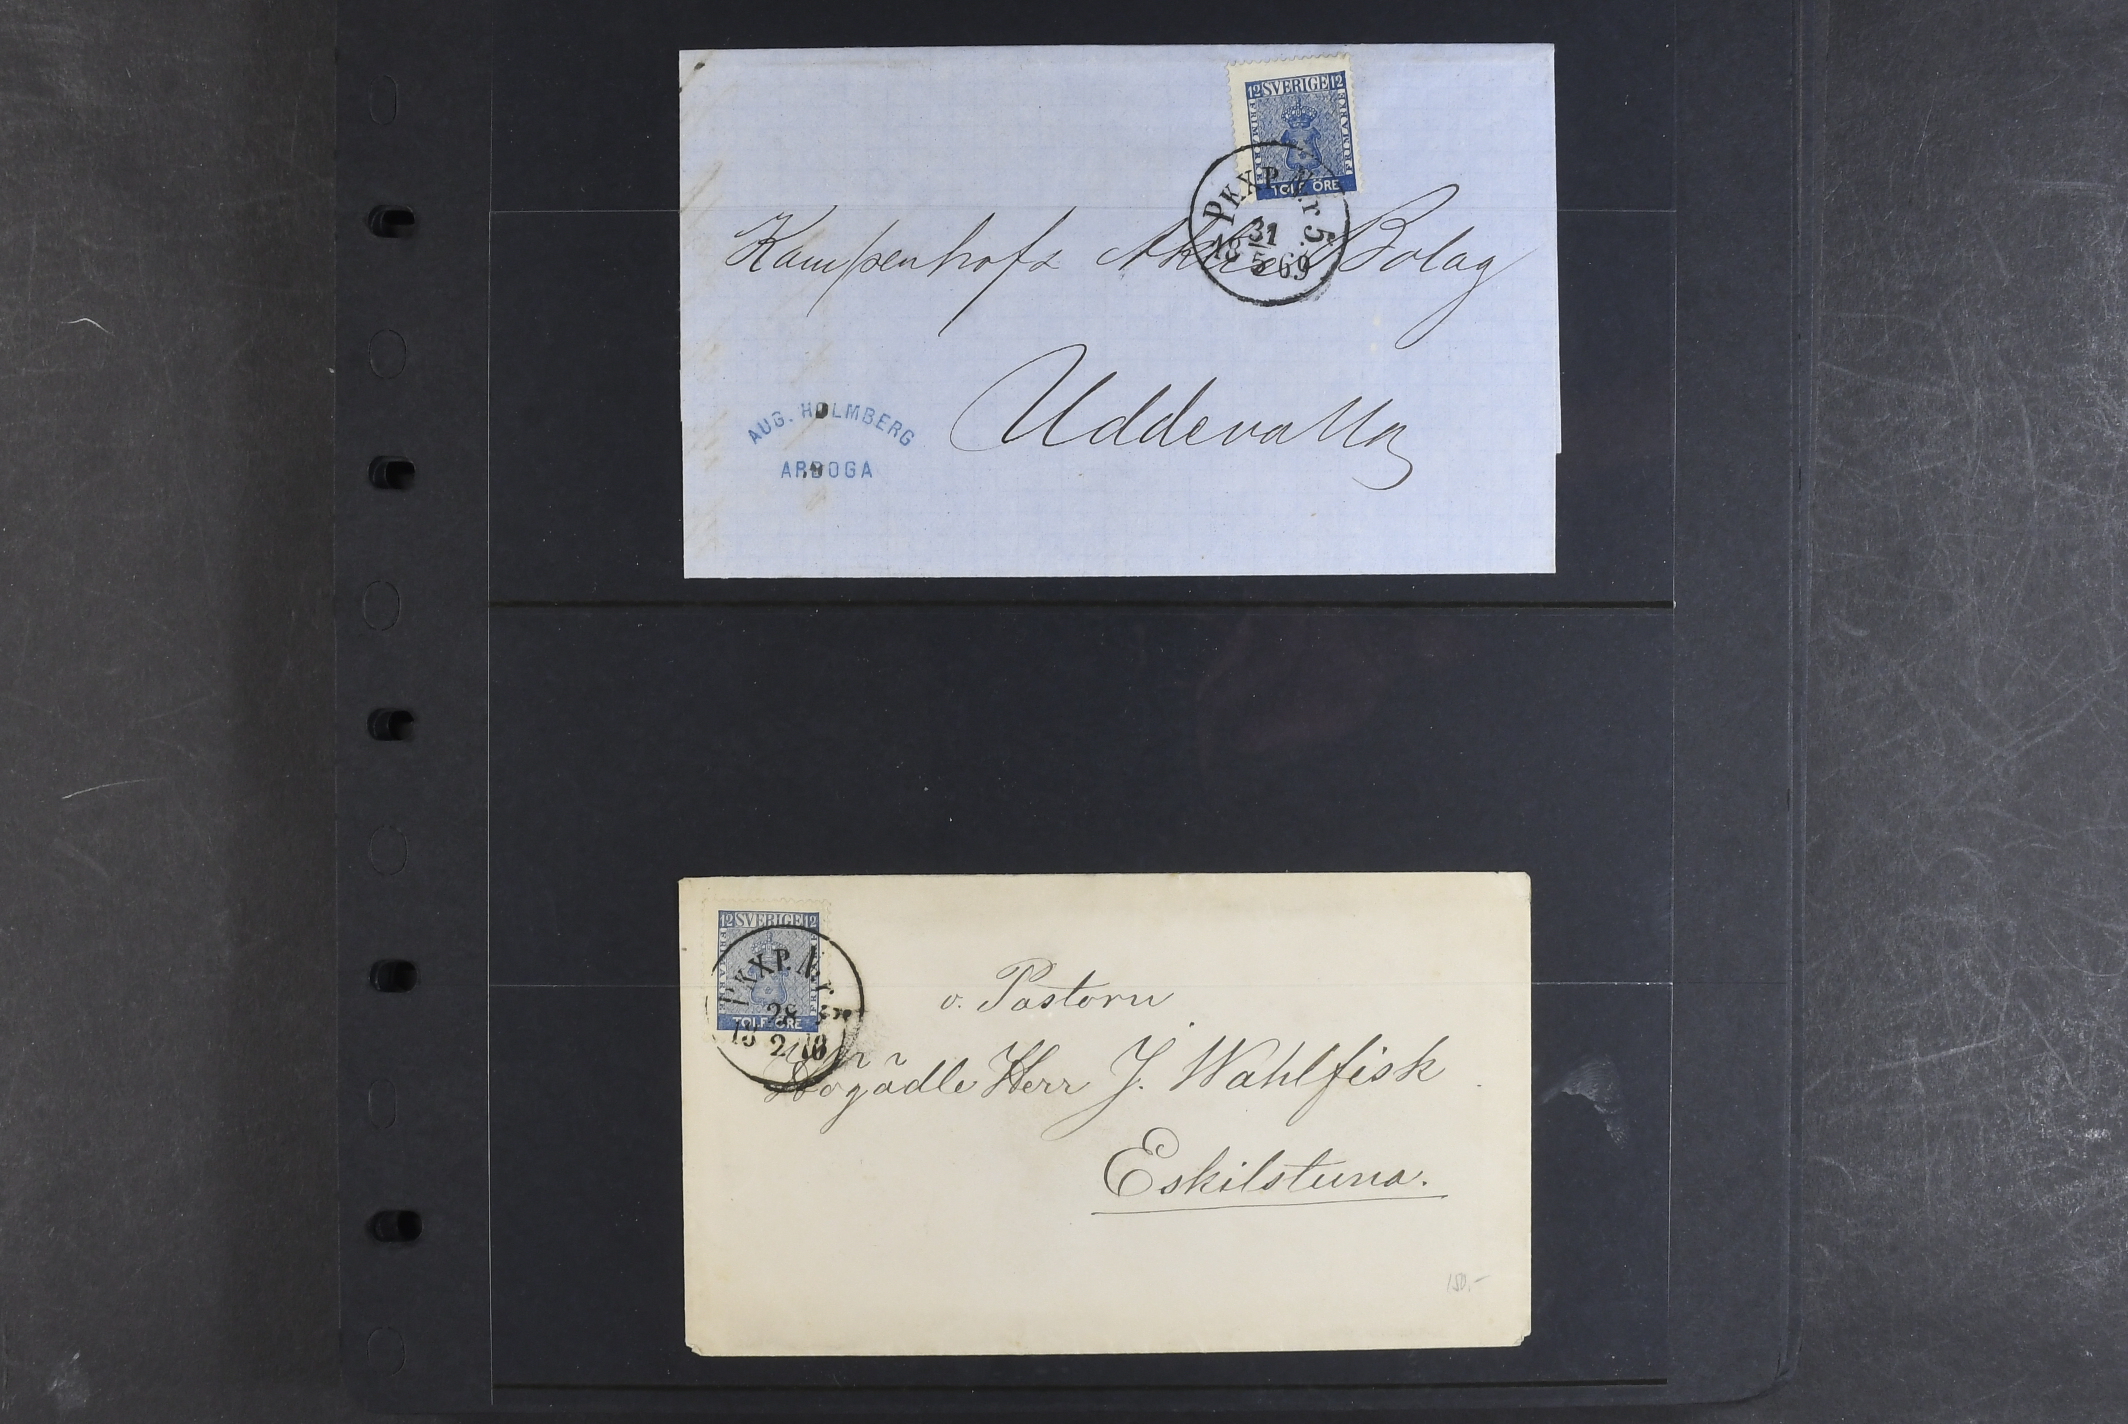 12 SVERIGE 12
FRIMÄRKE
FRIMÄRKE
TOLF ÖRE
PKXP. Nr. 5.
31
18 5 69
Kampenhofs Aktie Bolag
Uddevalla
AUG. HOLMBERG
ARBOGA
12 SVERIGE 12
TOLF ÖRE
PKXP. Nr.
28
2
v. Pastorn
Högädle Herr J. Wahlfisk
Eskilstuna.
150,-